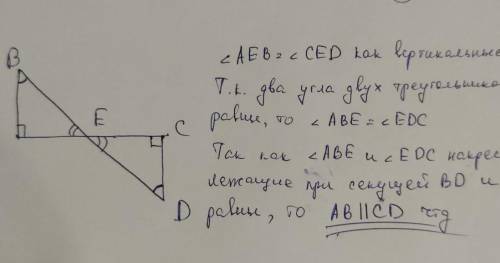 B
E
C
D
∠AEB = ∠CED как вертикальные
Т.к. два угла двух
равны, то ∠ABE = ∠EDC
Так как ∠ABE и ∠EDC
лежащие при секущей BD и
равны, то AB||CD чтд